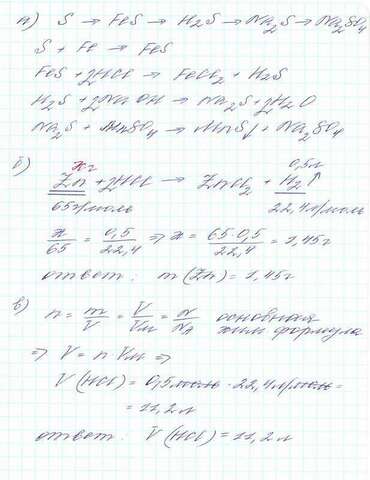 а) S → FeS → H₂S → Na₂S → Na₂SO₄
S + Fe → FeS
FeS + 2HCl → FeCl₂ + H₂S
H₂S + 2NaOH → Na₂S + 2H₂O
Na₂S + MnSO₄ → MnS↓ + Na₂SO₄
xг 0,5л
б) Zn + 2HCl → ZnCl₂ + H₂↑
65г/моль 22,4л/моль
x/65 = 0,5/22,4 ⇒ x = 65·0,5/22,4 = 1,45г
ответ: m(Zn) = 1,45г
в) n = m/V = V/Vм = N/Nₐ основная
хим формула
⇒ V = n Vм ⇒
V(HCl) = 0,5моль · 22,4л/моль =
= 11,2л
ответ: V(HCl) = 11,2л